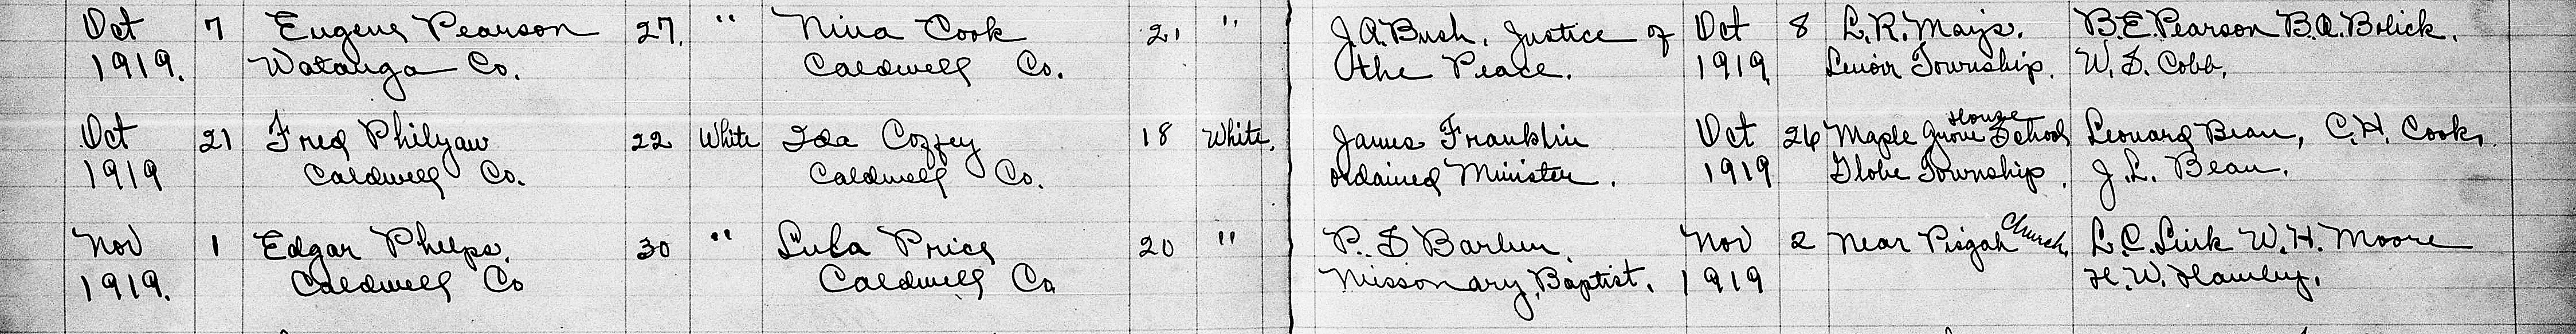 Oct 7 Eugene Pearson 27. " Nina Cook 21 " J.A. Bush, Justice of Oct 8 L.R. Mays. B.E. Pearson B.A. Bolick.
1919. Watauga Co. Caldwell Co. the Peace. 1919 Lenoir Township. W.S. Cobb,
House
Oct 21 Fred Philyaw 22 White Ida Coffey 18 White. James Franklin Oct 26 Maple Grove School Leonard Bean, C.H. Cook,
1919 Caldwell Co. Caldwell Co. ordained Minister. 1919 Globe Township, J.L. Bean.
Church,
Nov 1 Edgar Phelps. 30 " Lula Price 20 " P. S Nov 2 Near Pisgah L.C. Link W.H. Moore
1919. Caldwell Co Caldwell Co Missonary Baptist. 1919 H.W. Hawley,